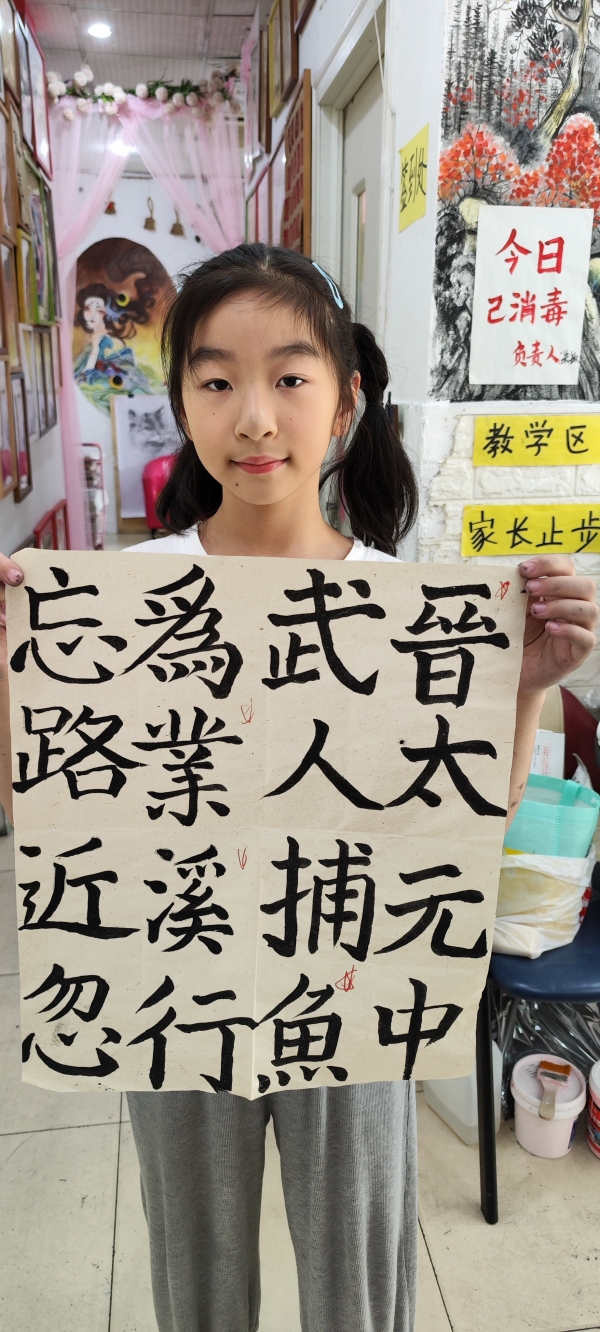 晉太元中
武人捕魚
爲業溪行
忘路近忽
签到处
今日
已消毒
负责人
教学区
家长止步